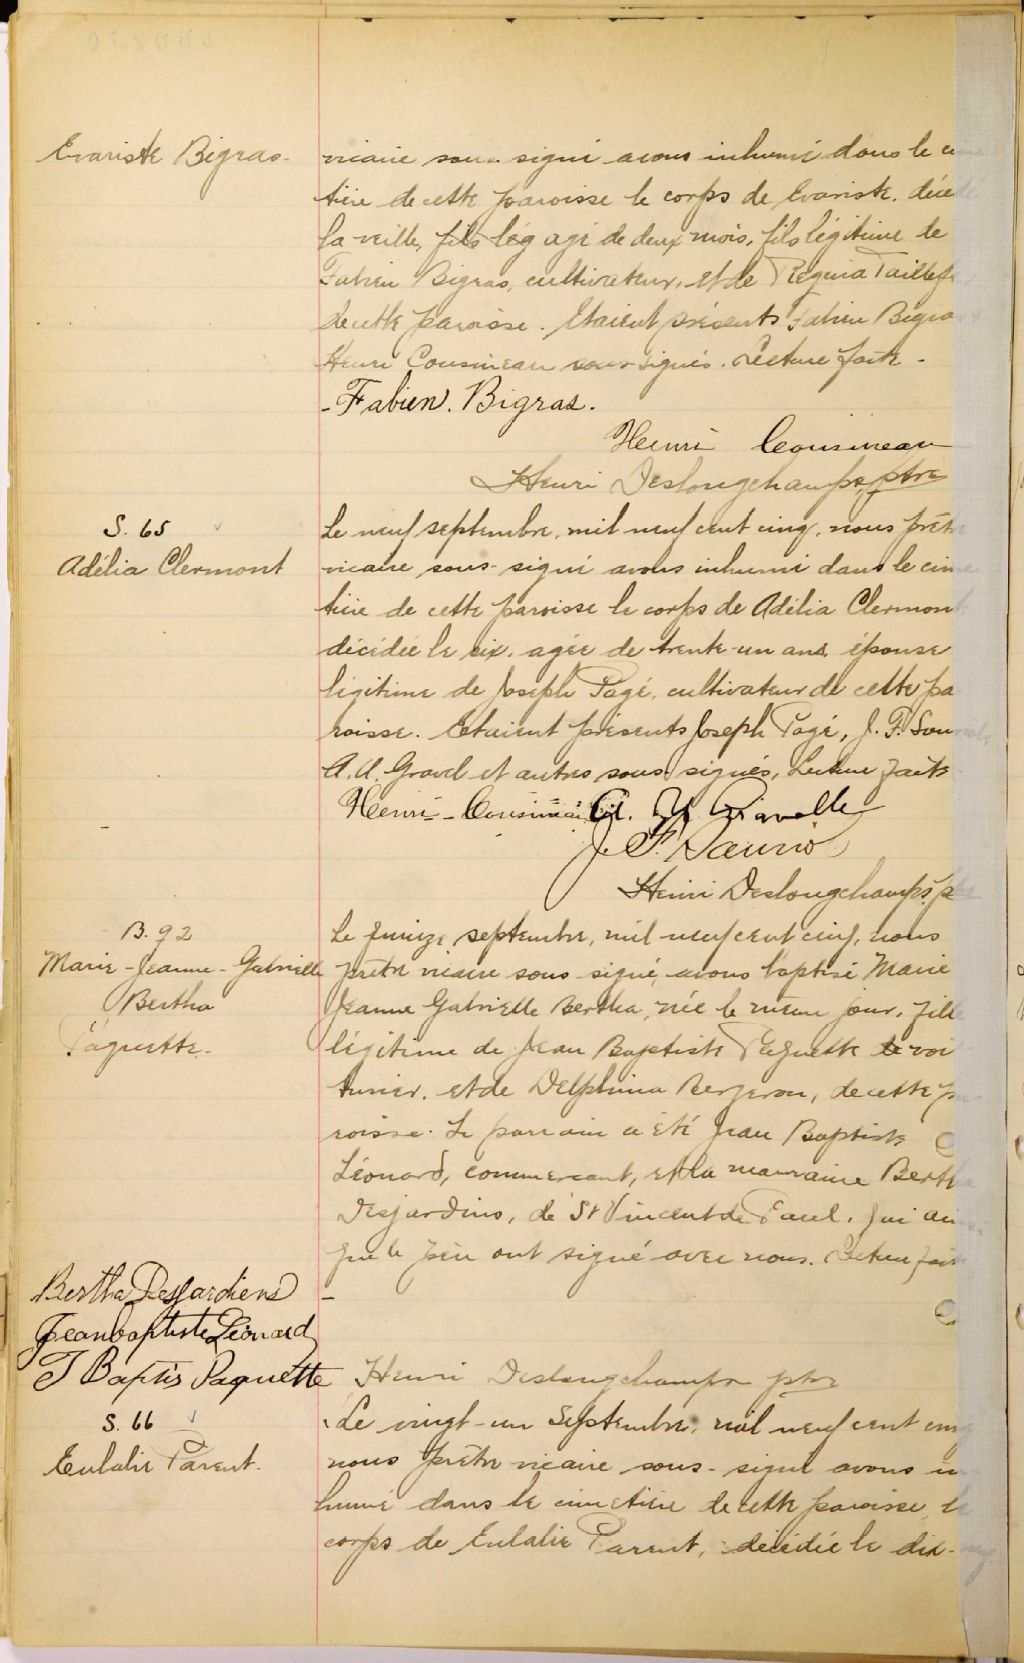 Evariste Bigras.
vicaire sous signé avons inhumé dans le ci
tière de cette paroisse le corps de Evariste. décé
la veille, fils lég agé de deux mois, fils légitime de
Fabien Bigras, cultivateur, et de Regina Taillef
de cette paroisse. Etaient présents Fabien Bigra
Henri Cousineau sous-signés. Lecture faite.
-Fabien. Bigras.
Henri Cousineau
Henri Deslongchamps, ptre
S. 65
Adélia Clermont
Le neuf septembre, mil neuf cent cinq, nous prêt
vicaire sous-signé avons inhumé dans le cime
tière de cette paroisse le corps de Adélia Clermont
décédée le six, agée de trente-un ans, épouse
légitime de Joseph Pagé, cultivateur de cette pa
roisse. Etaient présents Joseph Pagé, J. F.
A. A. Gravel et autres sous signés, Lecture faite
Henri - Cousineau A. Gravelle
J. F. Saurio
Henri Deslongchamps, p
B. 92
Marie-Jeanne-Gabrielle
Bertha
Paquette.
Le quinze septembre, mil neuf cent cinq, nous
prêtre vicaire sous signé, avons baptisé Marie
Jeanne Gabrielle Bertha, née le même jour, fille
légitime de Jean Baptiste Paquette de voi
turier, et de Delphina Bergeron, de cette p
roisse. Le parrain a été Jean Baptiste
Léonard, commercant, et la marraine Bertha
Desjardins, de St Vincent de Paul. qui ain
que le père ont signé avec nous. Lecture fait
Bertha Desjardiens
Jeanbaptiste Léonard
J Baptis Paquette
Henri Deslongchamps ptre
S. 66
Eulalie Parent.
Le vingt-un Septembre, mil neuf cent cinq
nous prêtre vicaire sous-signé avons in
humé dans le cimetière de cette paroisse, le
corps de Eulalie Parent, décédée le dix-